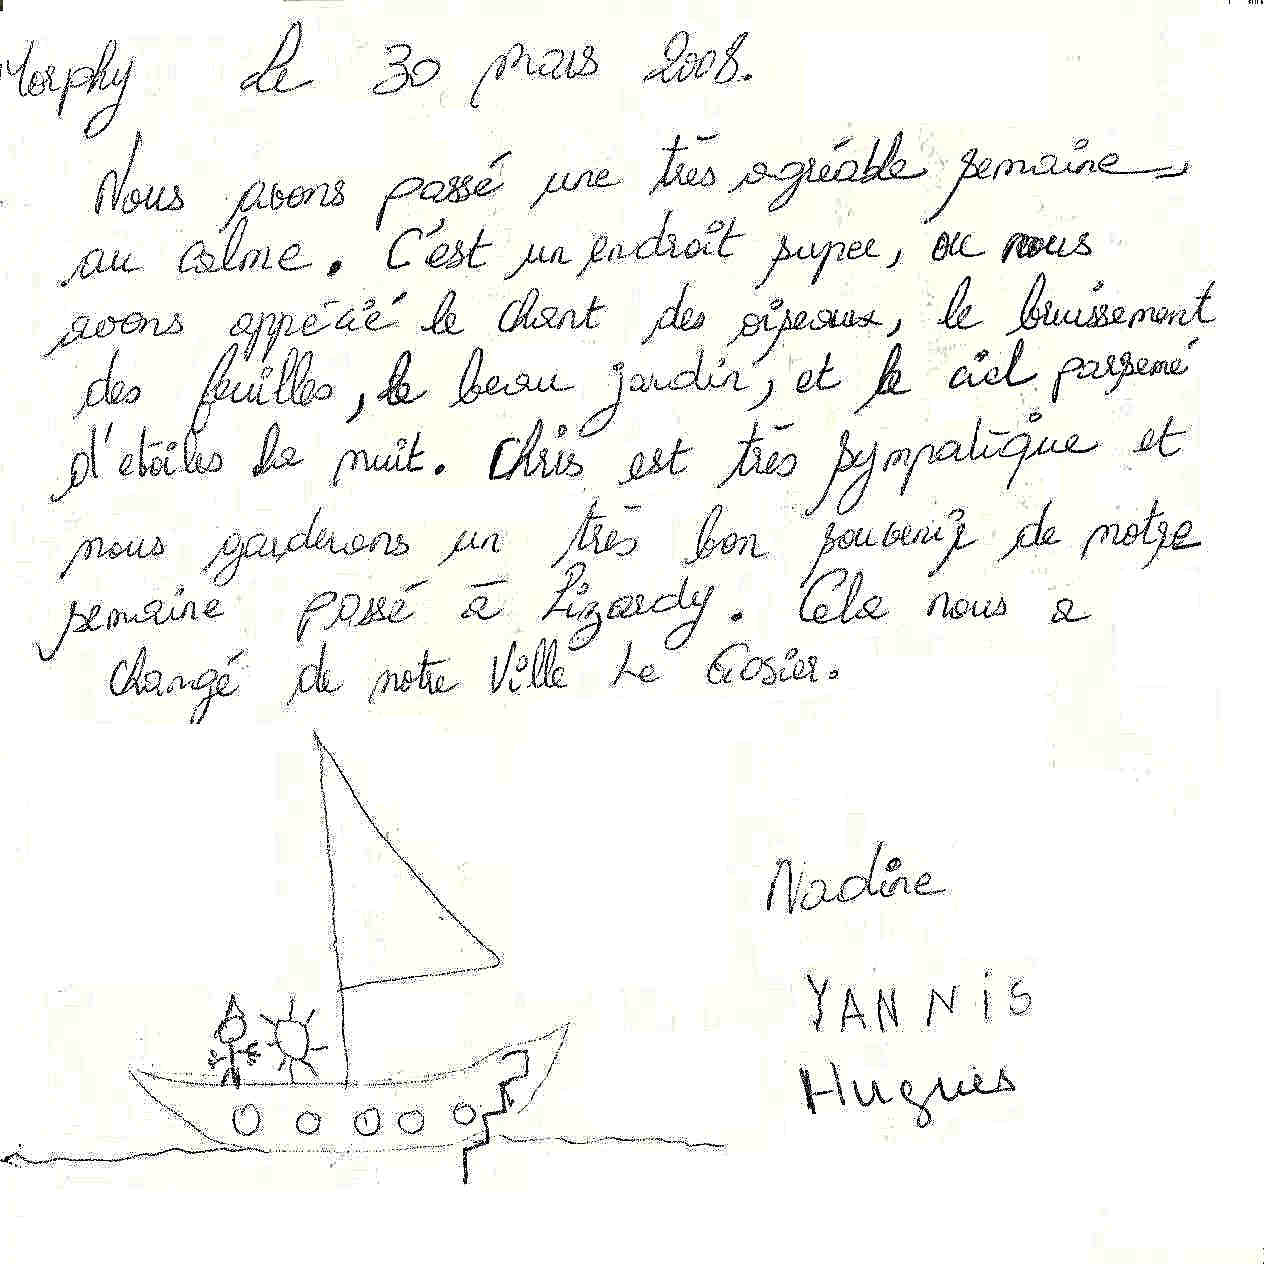 Morphy Le 30 mars 2008.
Nous avons passé une très agréable semaine
au calme. C'est un endroit super, ou nous
avons apprécié le chant des oiseaux, le bruissement
des feuilles, le beau jardin, et le ciel parsemé
d'etoiles la nuit. Chris est très sympatique et
nous garderons un très bon souvenir de notre
semaine passé à Lizardy. Cela nous a
changé de notre Ville Le Gosier.
Nadine
YANNiS
Hugues